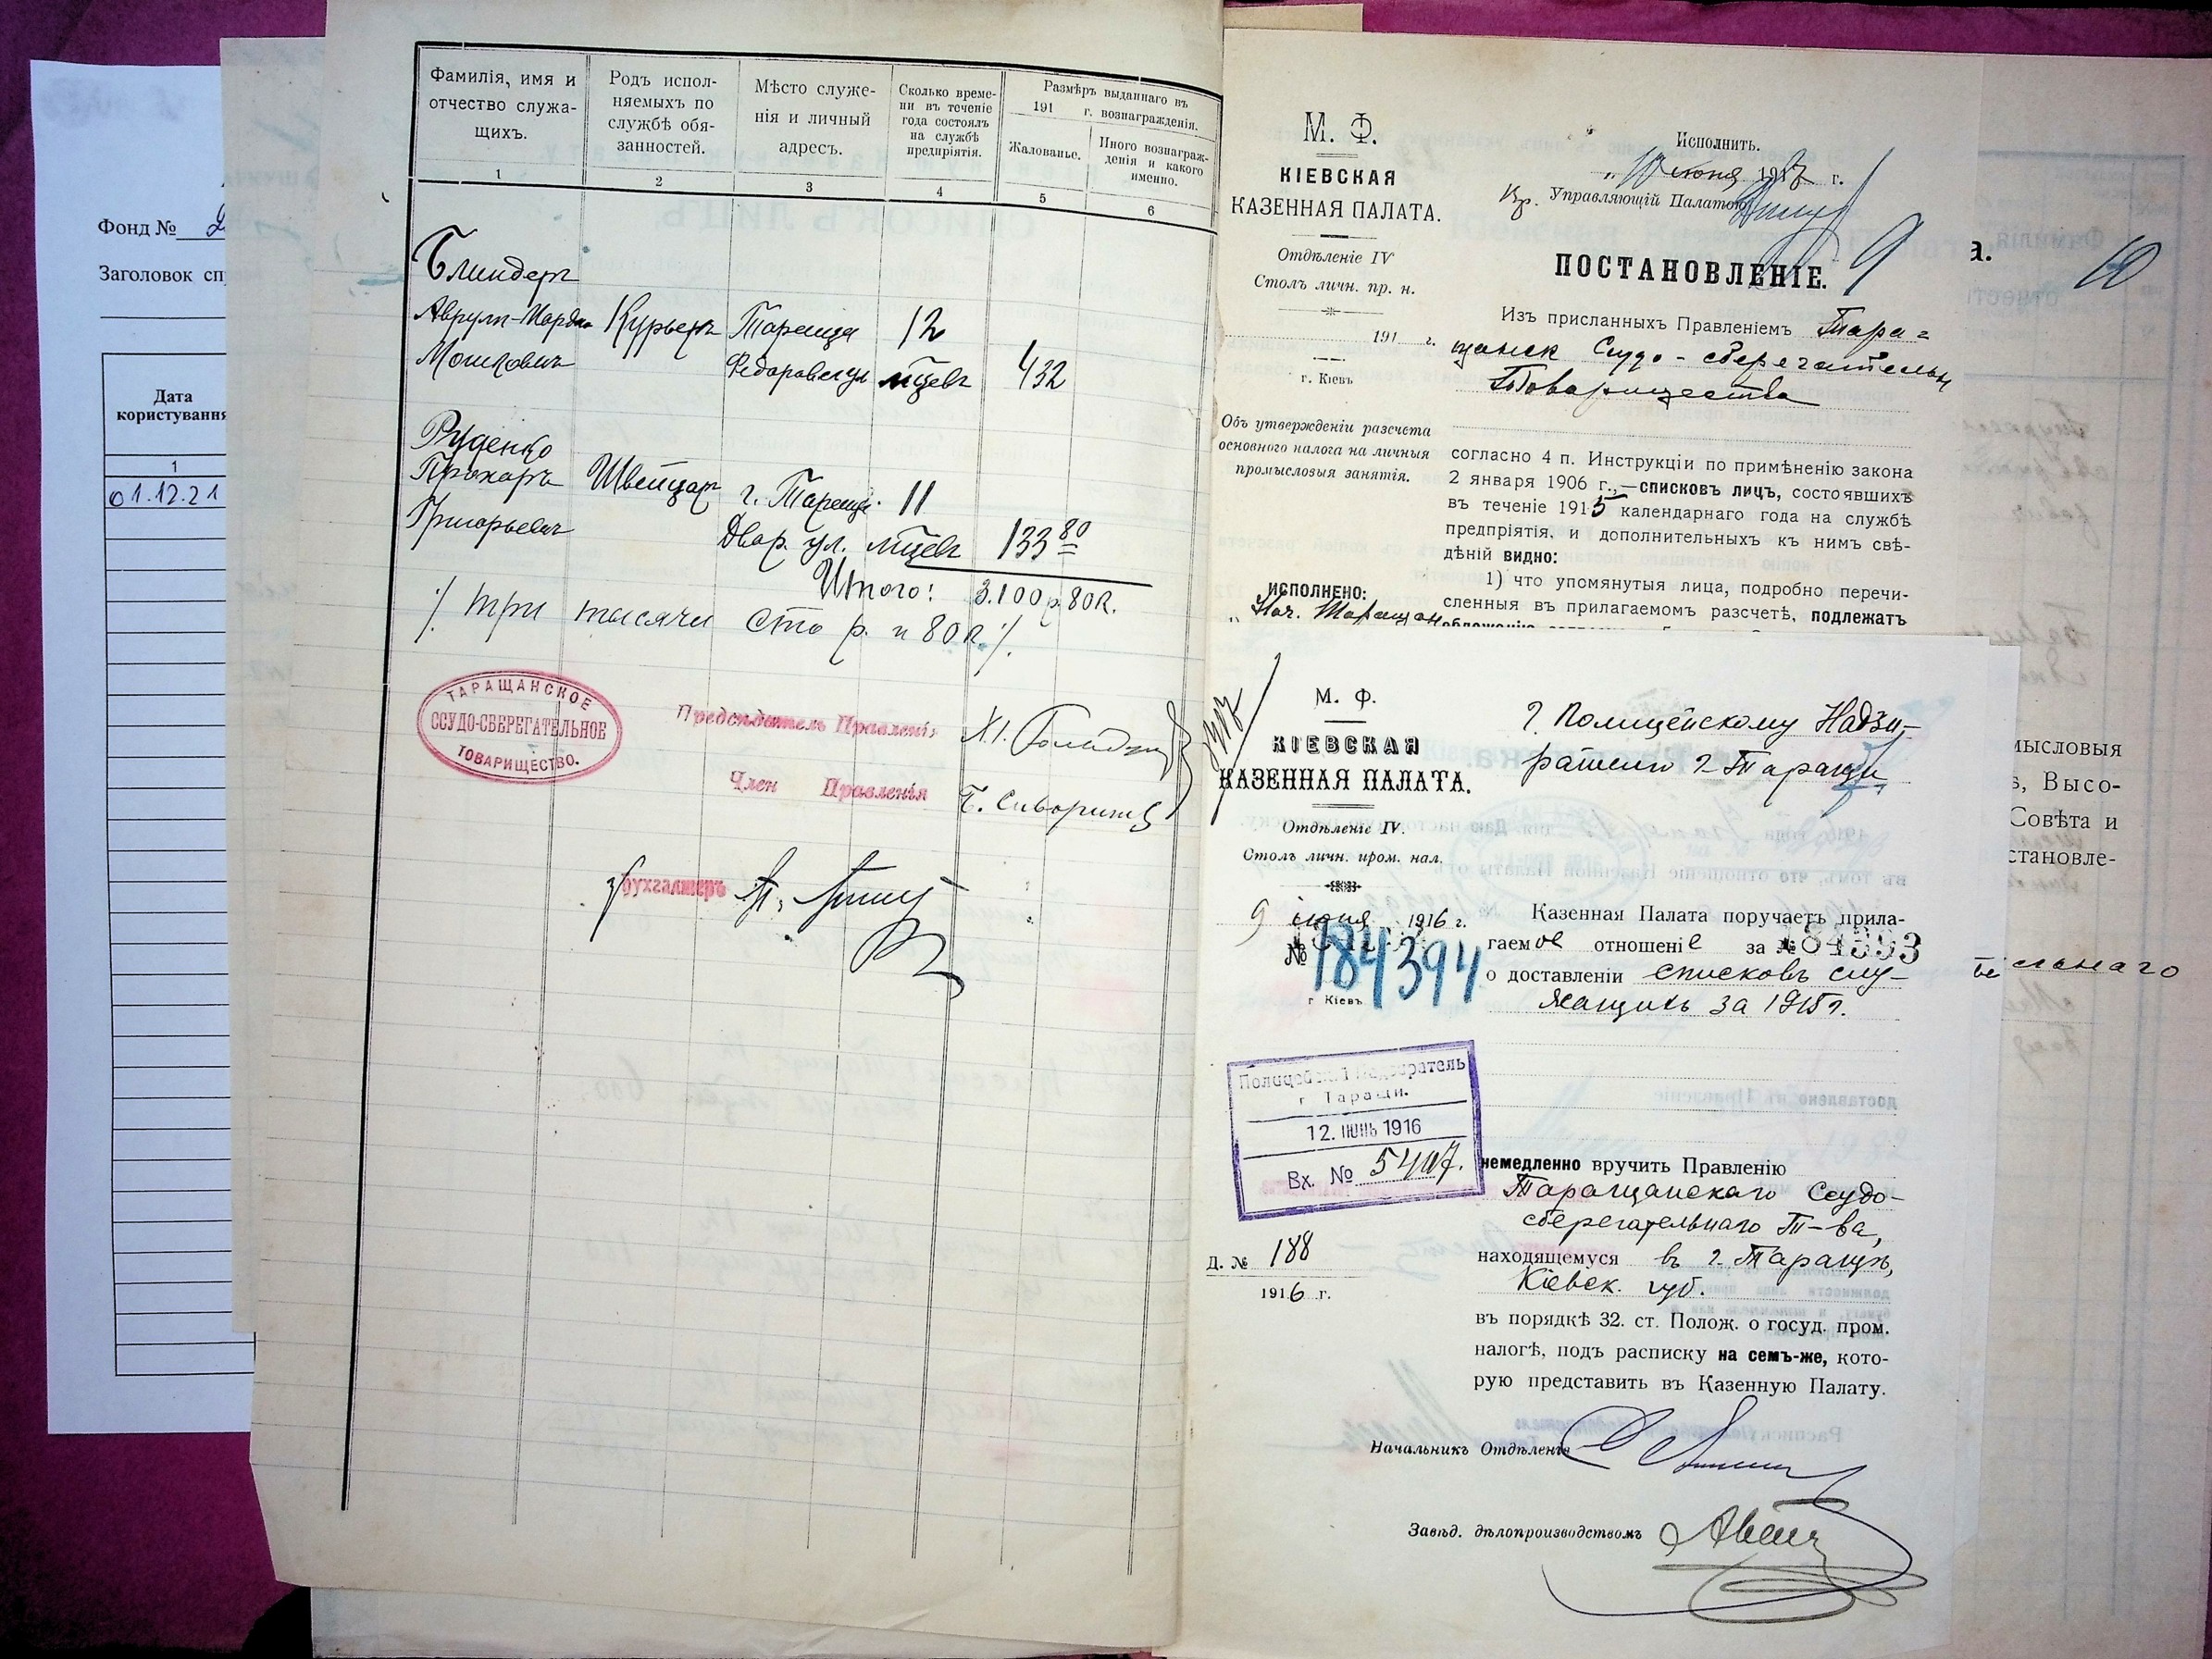 Фонд №
Заголовок сп
Дата
користування
1
01.12.21
Фамилія, имя и
отчество служа-
щихъ.
Родъ испол-
няемыхъ по
службѣ обя-
занностей.
Мѣсто служе-
нія и личный
адресъ.
Сколько време-
ни въ теченіе
года состоялъ
на службѣ
предпріятія.
Размѣръ выданнаго въ
191 г. вознагражденія.
Жалованье.
Иного вознаграж-
денія и какого
именно.
1 2 3 4 5 6
Блиндеръ
Аврумъ-Мордко Курьеръ Тараща 12
Мошковичъ Федоровск ул мѣсевъ 432
Руденко
Прохоръ Швейцаръ г. Тараща 11
Григорьевичъ Двор. ул. мѣсевъ 133 80
Итого: 3.100 р. 80 к.
/. три тысячи сто р. и 80 к. /.
ТАРАЩАНСКОЕ
ССУДО-СБЕРЕГАТЕЛЬНОЕ
ТОВАРИЩЕСТВО.
Предсѣдатель Правленія
Членъ Правленія
Бухгалтеръ
М. Ф.
КІЕВСКАЯ
КАЗЕННАЯ ПАЛАТА.
Отдѣленіе IV
Столъ личн. пр. н.
191 г.
г. Кіевъ
Объ утвержденіи разсчета
основного налога на личныя
промысловыя занятія.
ИСПОЛНЕНО:
Исполнить.
„ 10 іюня 191 г.
Управляющій Палатою
ПОСТАНОВЛЕНІЕ. 9
Изъ присланныхъ Правленіемъ Тара-
щанск Ссудо-сберегательн
Товарищества
согласно 4 п. Инструкціи по примѣненію закона
2 января 1906 г.,—списковъ лицъ, состоявшихъ
въ теченіе 1915 календарнаго года на службѣ
предпріятія, и дополнительныхъ къ нимъ свѣ-
дѣній видно:
1) что упомянутыя лица, подробно перечи-
сленныя въ прилагаемомъ разсчетѣ, подлежатъ
а. 10
мысловыя
ъ, Высо-
Совѣта и
становле-
ельнаго
М. Ф.
КІЕВСКАЯ
КАЗЕННАЯ ПАЛАТА.
Отдѣленіе IV.
Столъ личн. пром. нал.
9 іюня 1916 г.
№ 184394
г Кіевъ
Г. Полицейскому Надзи-
рателю г. Таращи
Казенная Палата поручаетъ прила-
гаемое отношеніе за № 184393
о доставленіи списковъ слу-
жащихъ за 1915 г.
Полицейскій Надзиратель
г. Таращи.
12. ІЮНЬ 1916
Вх. № 5407.
немедленно вручить Правленію
Таращанскаго Ссудо-
сберегательнаго Т-ва,
находящемуся въ г. Таращѣ,
Кіевск. губ.
Д. № 188
1916 г.
въ порядкѣ 32. ст. Полож. о госуд. пром.
налогѣ, подъ расписку на семъ-же, кото-
рую представить въ Казенную Палату.
Начальникъ Отдѣленія
Завѣд. дѣлопроизводствомъ